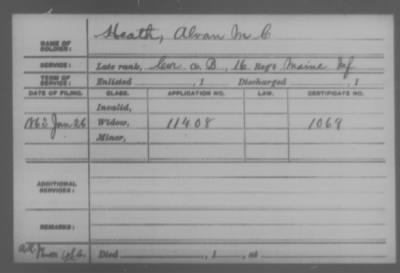 NAME OF SOLDIER: Heath, Alvan M C
SERVICE: Late rank, Cor. Co. B, 16 Reg't Maine Inf
TERM OF SERVICE: Enlisted , 1 Discharged , 1
DATE OF FILING. CLASS. APPLICATION NO. LAW. CERTIFICATE NO.
Invalid,
1863 Jan 26 Widow, 11408 1069
Minor,
ADDITIONAL SERVICES:
REMARKS:
Died , 1 , at